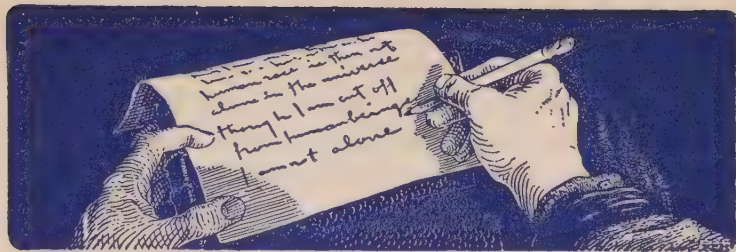 human race is then not
alone in the universe
though I am cut off
from human beings
I am not alone